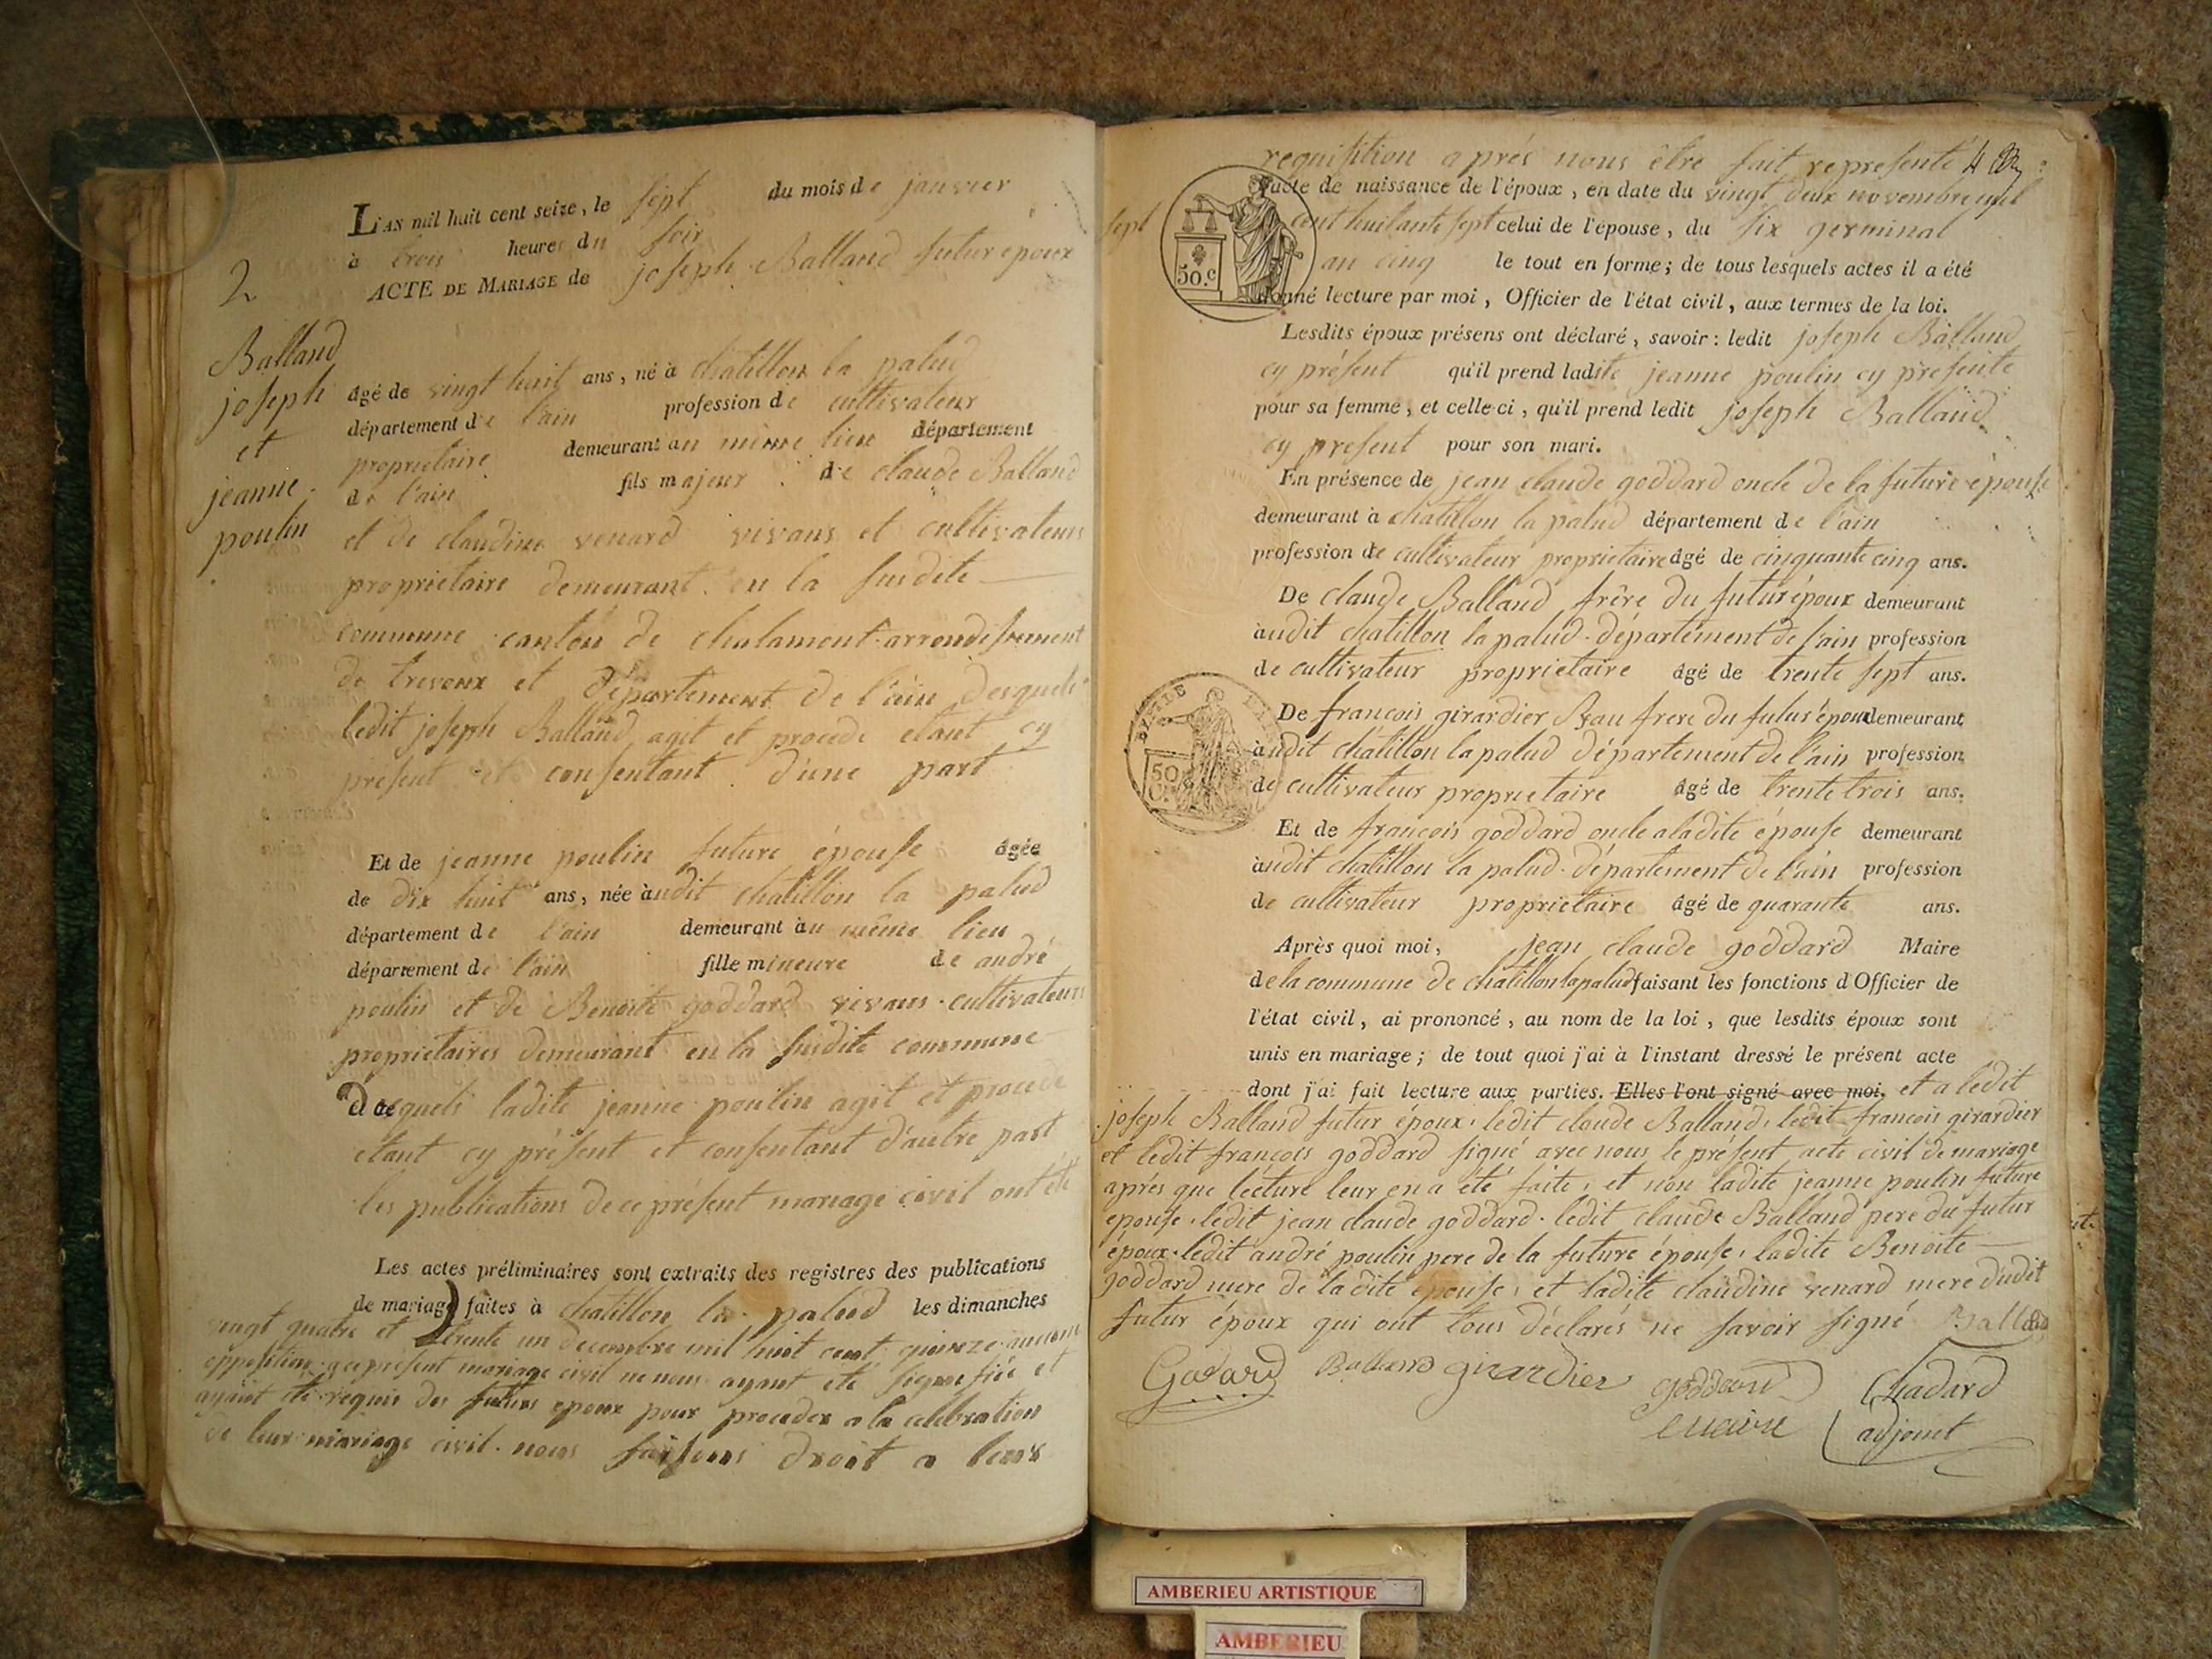 2
Balland
joseph
et
jeanne
poulin
L'AN mil huit cent seize, le sept du mois de janvier
à trois heures du soir
ACTE DE MARIAGE de joseph Balland futur époux
âgé de vingt huit ans, né à chatillon la palud
département de l'ain profession de cultivateur
proprietaire demeurant au même lieu département
de l'ain fils majeur de claude Balland
et de claudine venard vivans et cultivateurs
proprietaire demeurant en la susdite
commune canton de chalamont arrondissement
de trevoux et département de l'ain desquels
ledit joseph Balland agit et procede etant cy
présent et consentant d'une part
Et de jeanne poulin future épouse âgée
de dix huit ans, née audit chatillon la palud
département de l'ain demeurant au même lieu
département de l'ain fille mineure de andré
poulin et de Benoite goddard vivans cultivateurs
proprietaires demeurant en la susdite commune
desquels ladite jeanne poulin agit et procede
etant cy présent et consentant d'autre part
les publications de ce présent mariage civil ont été
Les actes préliminaires sont extraits des registres des publications
de mariage faites à chatillon la palud les dimanches
vingt quatre et trente un decembre mil huit cent quinze aucune
opposition a ce présent mariage civil ne nous ayant été signifiée et
ayant été requis des futurs epoux pour proceder a la celebration
de leur mariage civil nous faisons droit a leur
requisition aprés nous être fait representé 4
l'acte de naissance de l'époux, en date du vingt deux novembre mil
sept cent huitante sept celui de l'épouse, du six germinal
an cinq le tout en forme; de tous lesquels actes il a été
donné lecture par moi, Officier de l'état civil, aux termes de la loi.
50.c
Lesdits époux présens ont déclaré, savoir: ledit joseph Balland
cy présent qu'il prend ladite jeanne poulin cy présente
pour sa femme, et celle-ci, qu'il prend ledit joseph Balland
cy present pour son mari.
En présence de jean claude goddard oncle de la future épouse
demeurant à chatillon la palud département de l'ain
profession de cultivateur proprietaire âgé de cinquante cinq ans.
De claude Balland frère du futur époux demeurant
audit chatillon la palud département de l'ain profession
de cultivateur proprietaire âgé de trente sept ans.
De françois girardier Beau frere du futur époux demeurant
audit chatillon la palud département de l'ain profession
de cultivateur proprietaire âgé de trente trois ans.
50
C.
Et de françois goddard oncle a ladite épouse demeurant
audit chatillon la palud département de l'ain profession
de cultivateur proprietaire âgé de quarante ans.
Après quoi moi, jean claude goddard Maire
de la commune de chatillon la palud faisant les fonctions d'Officier de
l'état civil, ai prononcé, au nom de la loi, que lesdits époux sont
unis en mariage; de tout quoi j'ai à l'instant dressé le présent acte
dont j'ai fait lecture aux parties. Elles l'ont signé avec moi. et a ledit
joseph Balland futur époux, ledit claude Balland, ledit françois girardier
et ledit françois goddard signé avec nous le présent acte civil de mariage
aprés que lecture leur en a été faite, et non ladite jeanne poulin future
epouse, ledit jean claude goddard, ledit claude Balland pere du futur
époux, ledit andré poulin pere de la future épouse, ladite Benoite
goddard mere de ladite épouse, et ladite claudine venard mere dudit
futur époux qui ont tous déclarés ne savoir signé Balland
Godard Balland girardier goddard Chadard
maire adjoint
AMBERIEU ARTISTIQUE
AMBERIEU